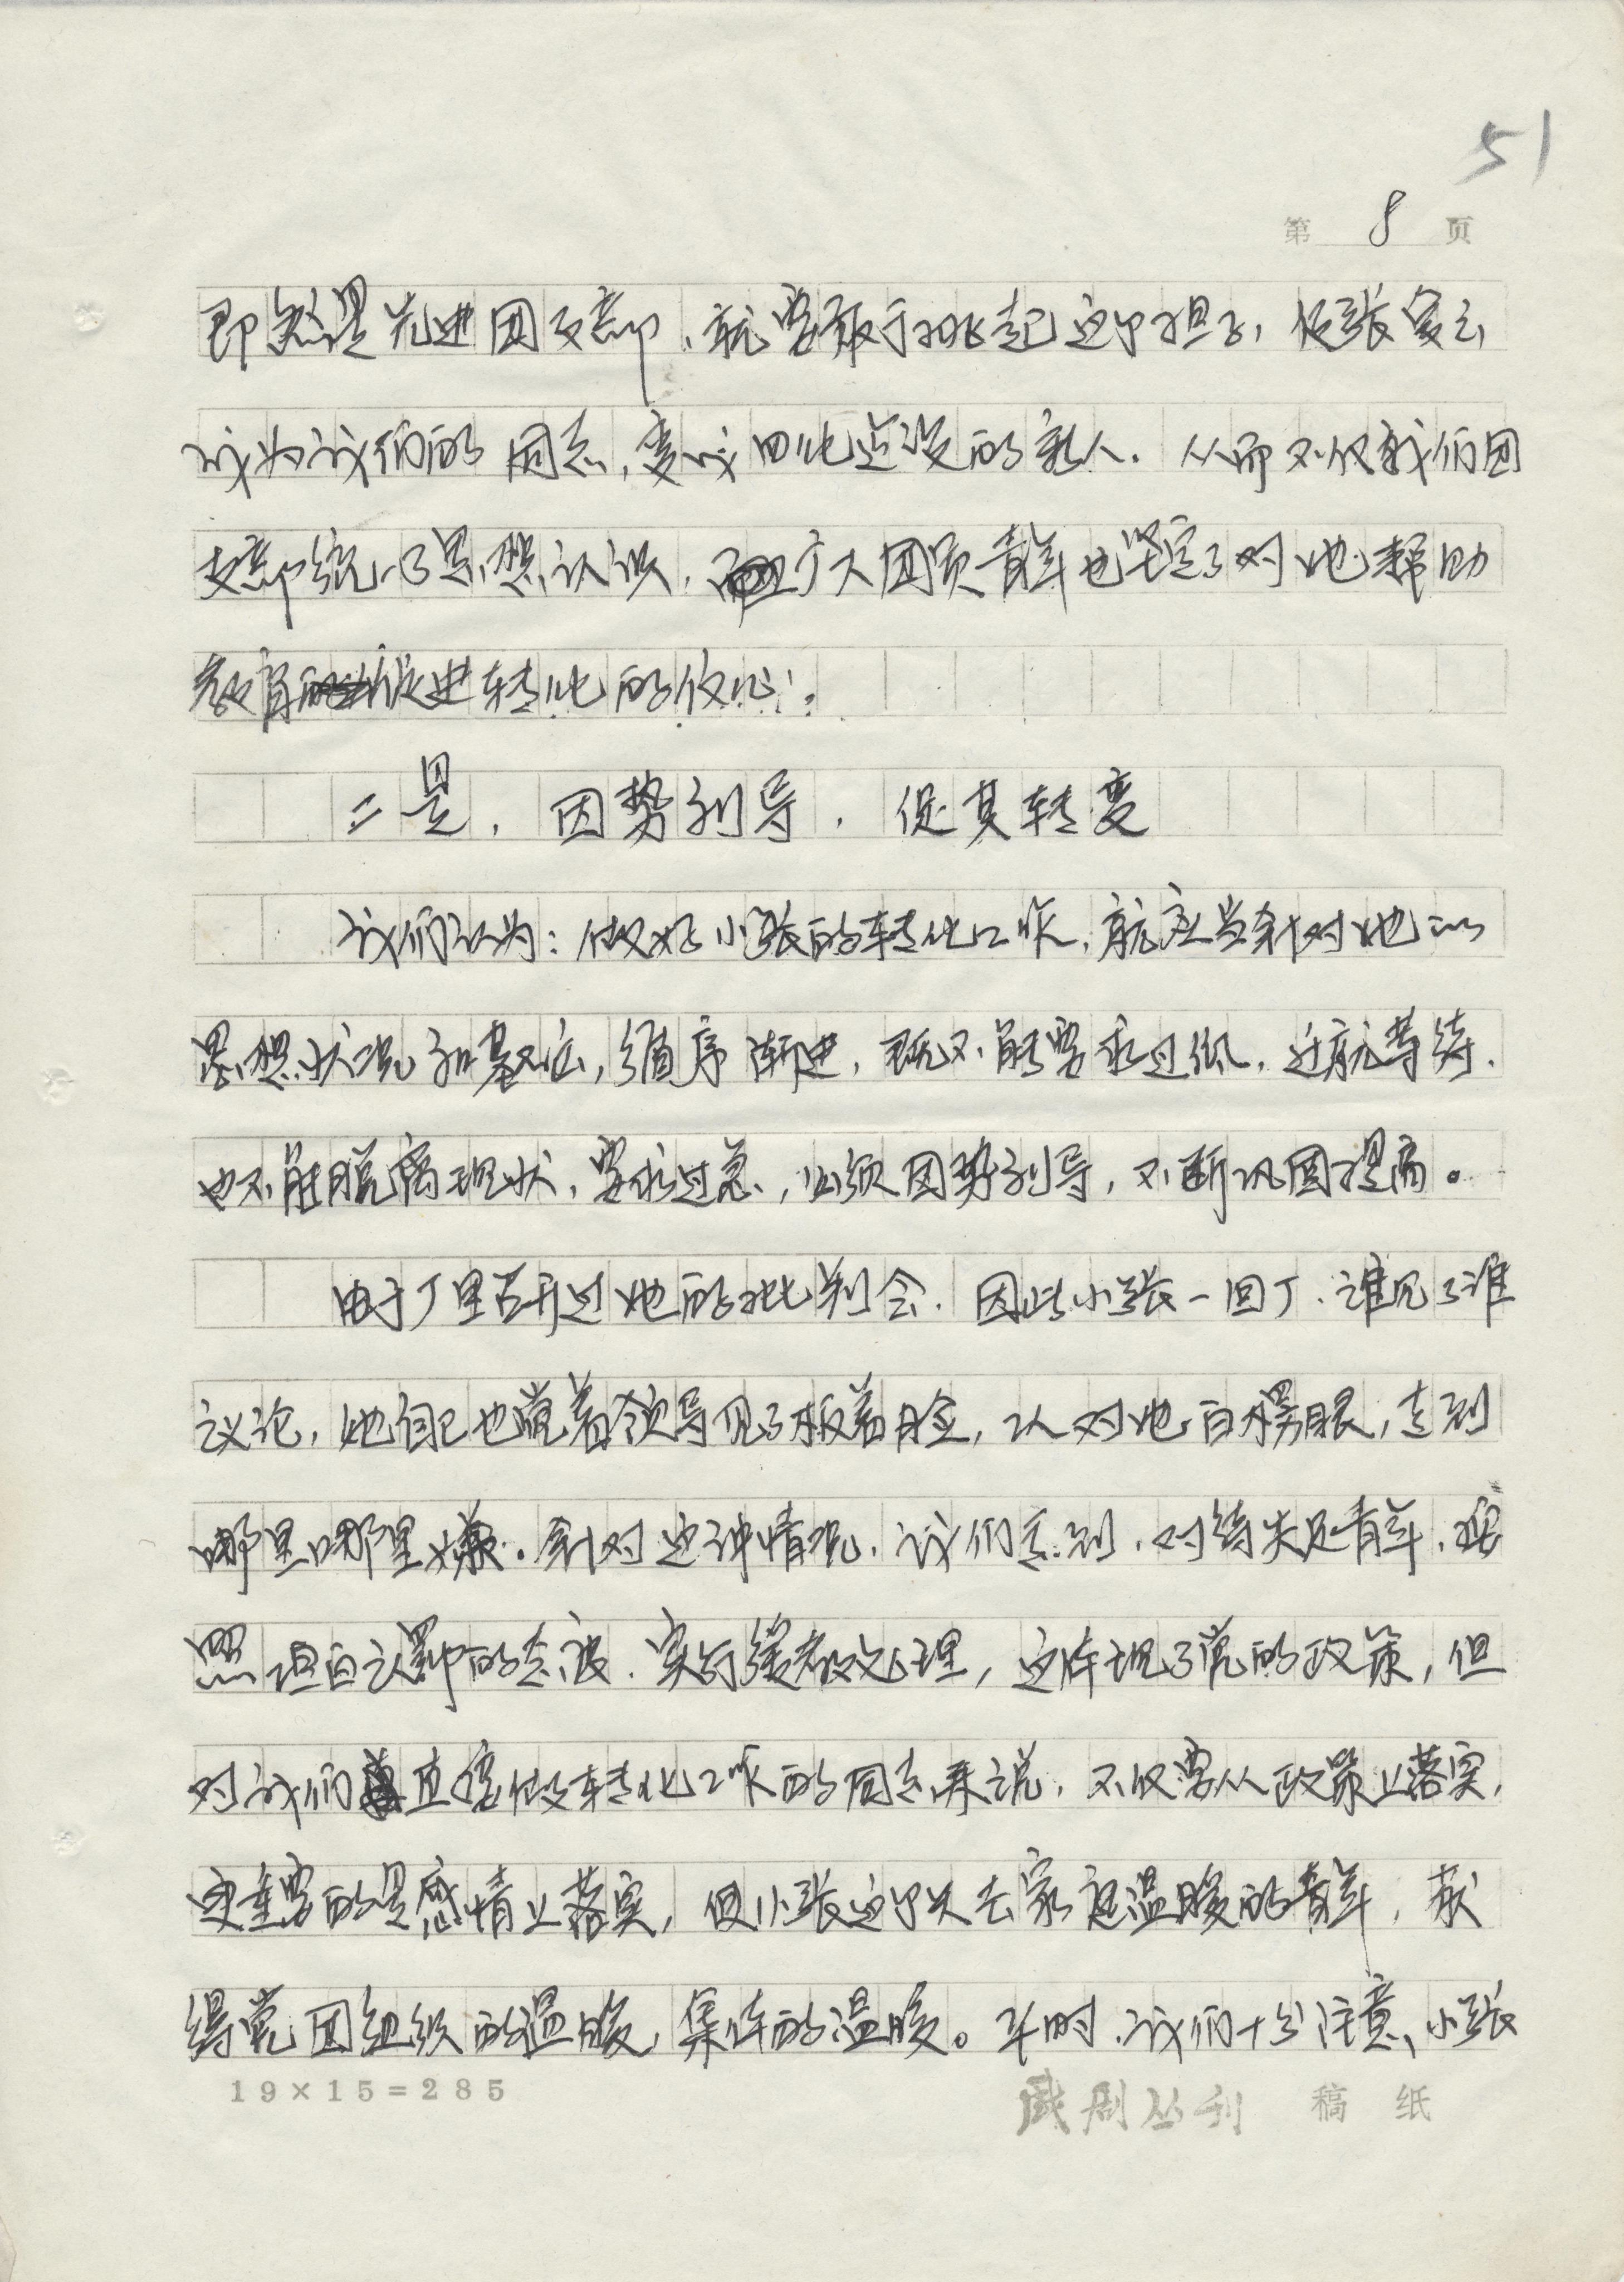 51
第 8 页
即然是先进团支部，就要敢于挑起这个担子，使张
成为我们的同志，变成四化建设的新人。从而不仅我们团
支部统一了思想认识，而且广大团员青年也坚定了对她帮助
教育促进转化的信心。
二是，因势利导，促其转变
我们认为：做好小张的转化工作，就应当针对她的
思想状况和基础，循序渐进，既不能要求过低，迁就等待，
也不能脱离现状，要求过急，必须因势利导，不断巩固提高。
由于厂里召开过她的批判会，因此小张一回厂，谁见了谁
议论，她自己也觉着领导见了板着脸，人对她白楞眼，走到
哪里哪里嫌。针对这种情况，我们意识到，对待失足青年，按
照坦白认罪的态度，实行缓教处理，这体现了党的政策，但
对我们直接做转化工作的同志来说，不仅要从政策上落实，
更重要的是感情上落实，使小张这个失去家庭温暖的青年，获
得党团组织的温暖，集体的温暖。平时，我们十分注意小张
19×15=285
戏剧丛刊 稿纸